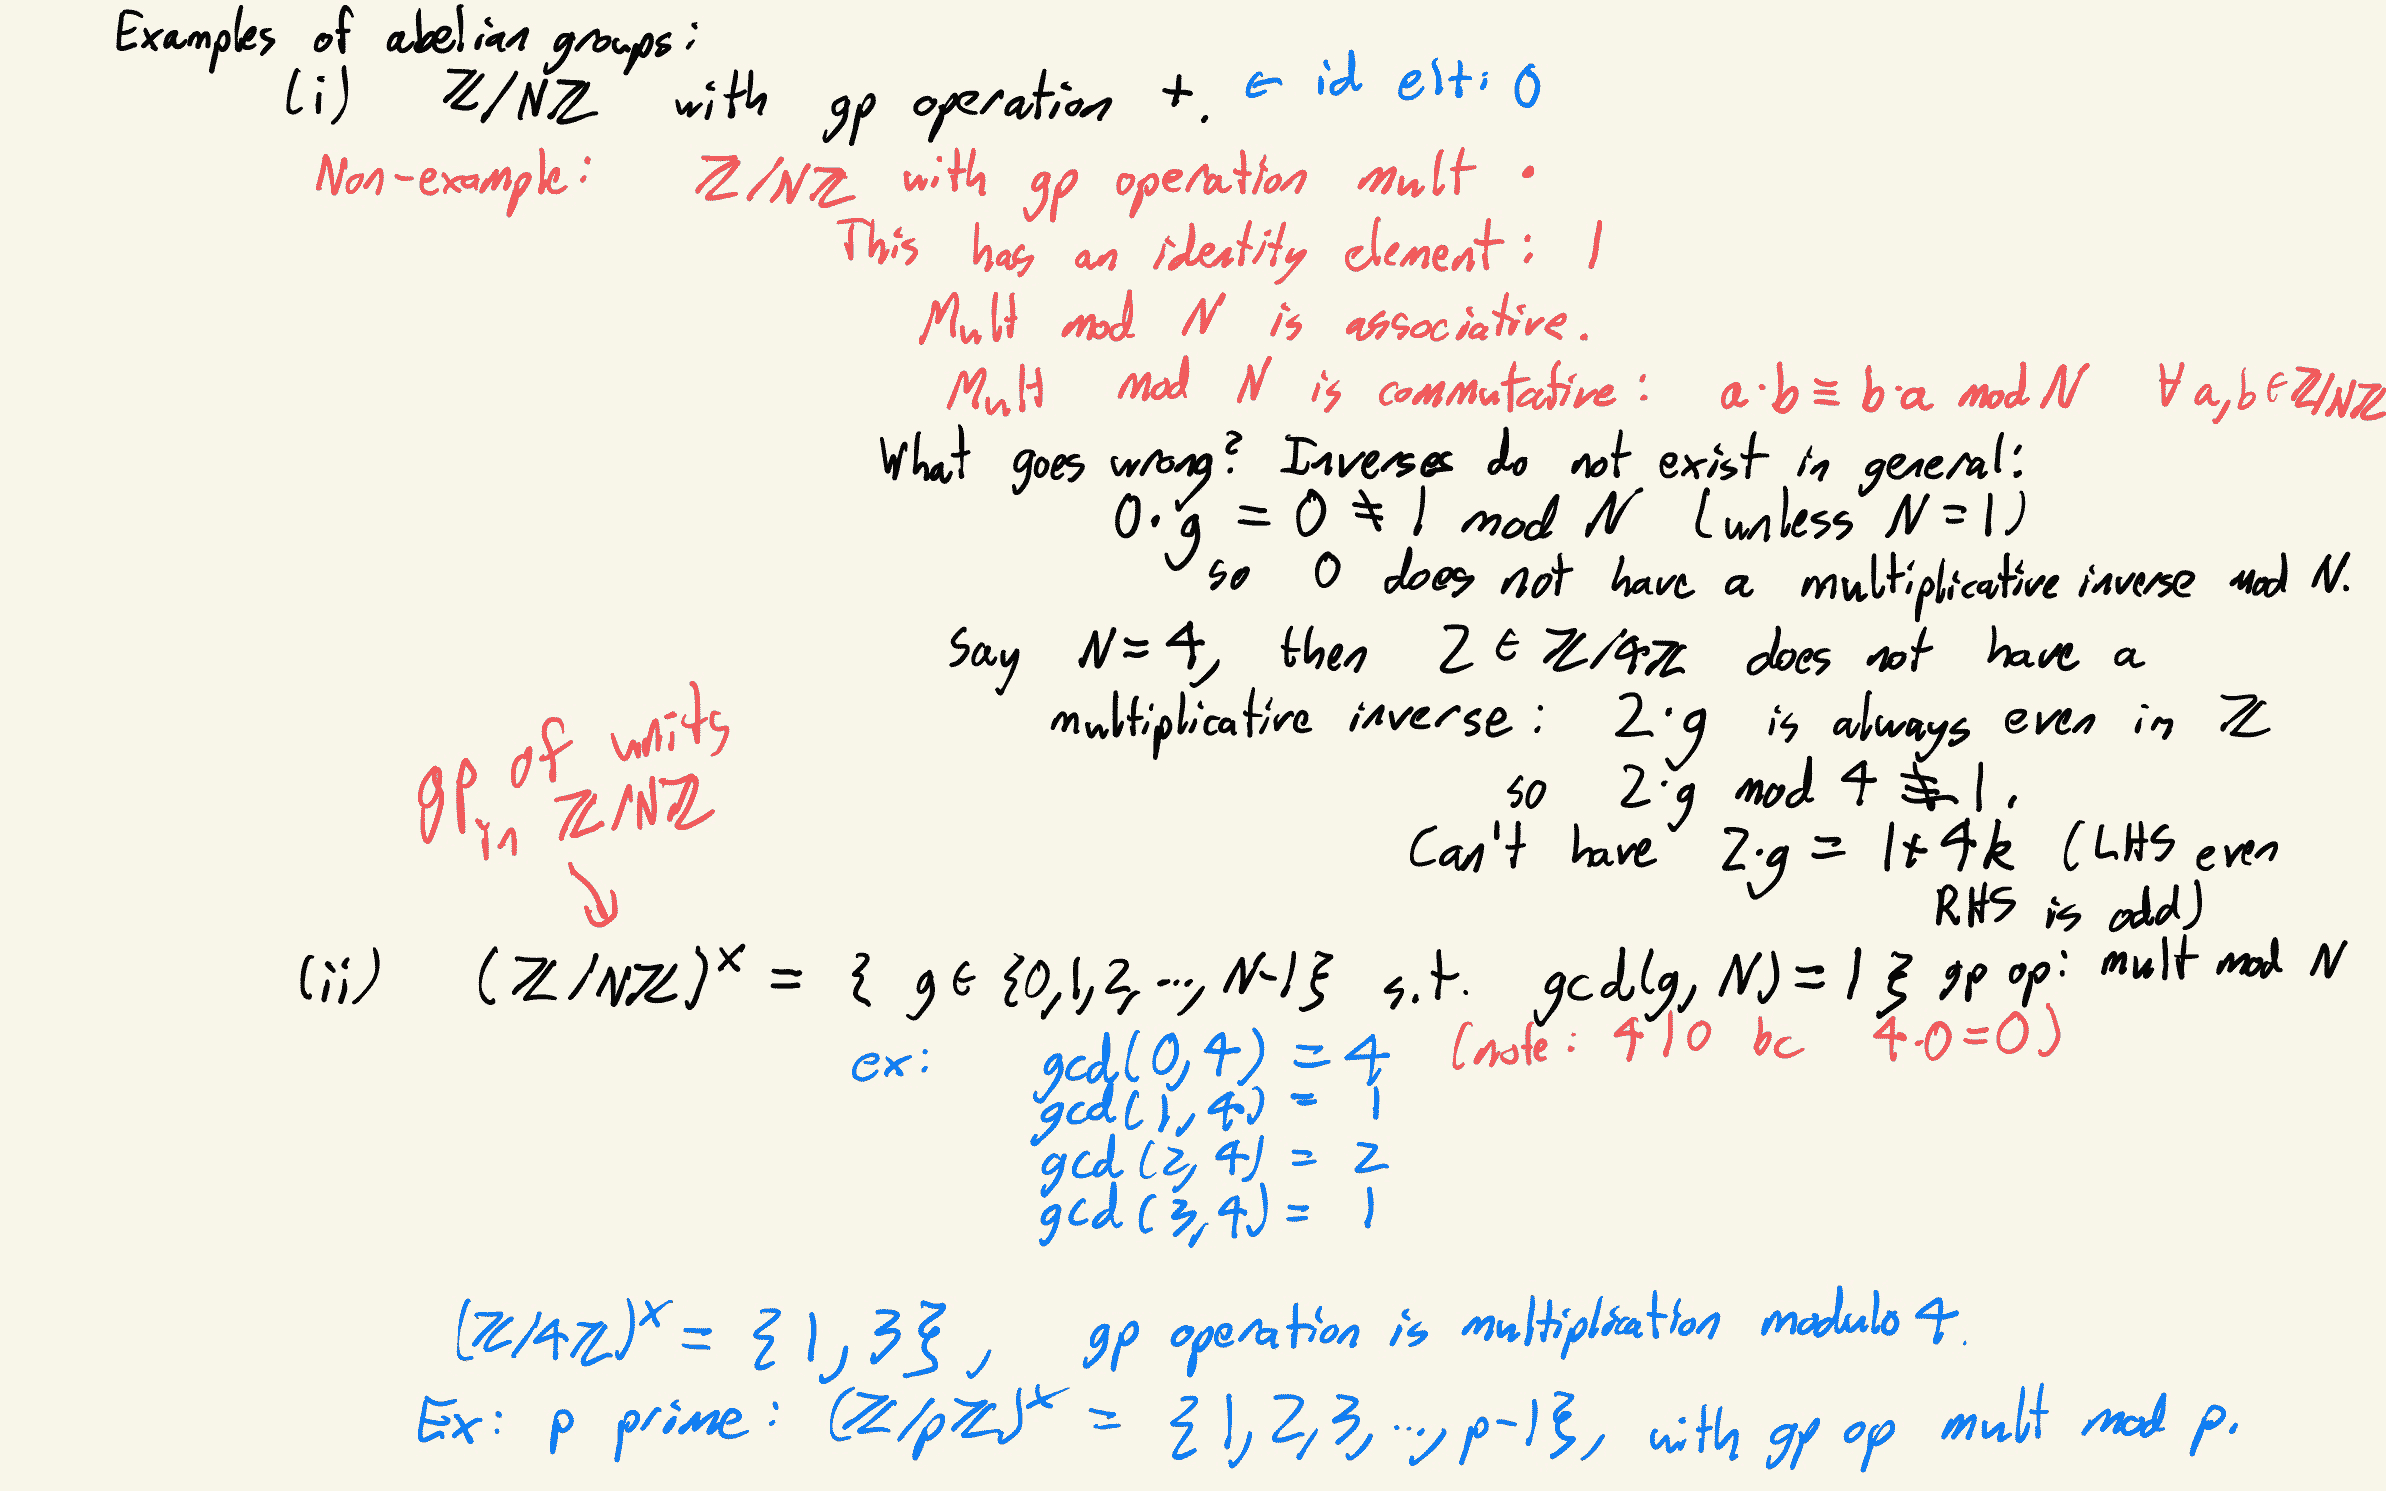 Examples of abelian groups:
(i) ℤ/Nℤ with gp operation +. ← id elt: 0
Non-example: ℤ/Nℤ with gp operation mult ·
This has an identity element: 1
Mult mod N is associative.
Mult mod N is commutative: a·b ≡ b·a mod N ∀ a,b ∈ ℤ/Nℤ
What goes wrong? Inverses do not exist in general:
0·g = 0 ≢ 1 mod N (unless N=1)
so 0 does not have a multiplicative inverse mod N.
Say N=4, then 2 ∈ ℤ/4ℤ does not have a
multiplicative inverse: 2·g is always even in ℤ
so 2·g mod 4 ≢ 1.
Can't have 2·g = 1+4k (LHS even
RHS is odd)
gp of units
in ℤ/Nℤ
(ii) (ℤ/Nℤ)^× = { g ∈ {0,1,2,...,N-1} s.t. gcd(g,N)=1 } gp op: mult mod N
ex: gcd(0,4) = 4 (note: 4|0 bc 4·0=0)
gcd(1,4) = 1
gcd(2,4) = 2
gcd(3,4) = 1
(ℤ/4ℤ)^× = {1,3}, gp operation is multiplication modulo 4.
Ex: p prime: (ℤ/pℤ)^× = {1,2,3,...,p-1}, with gp op mult mod p.